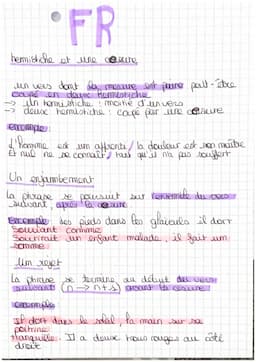 FR
hemistiche et une césure
un vers dont la mesure est paire peut-être
coupé en deux hemistiche
→ Un hemistiche : moitié d'un vers
→ deux hemistiche : coupé par une césure
exemple
L'homme est un apprenti / la douleur est son maître
Et nul ne se connaît / tant qu'il n'a pas souffert
Un enjambement
La phrase se poursuit sur l'ensemble du vers
suivant, après la césure
Exemple les pieds dans les glaïeuls il dort
Souriant comme
Sourirait un enfant malade, il fait un
somme
Un rejet
La phrase se termine au début du vers
suivant (n → n+1) avant la césure
exemple
Il dort dans le soleil, la main sur sa
poitrine
tranquille. Il a deux trous rouges au côté
droit